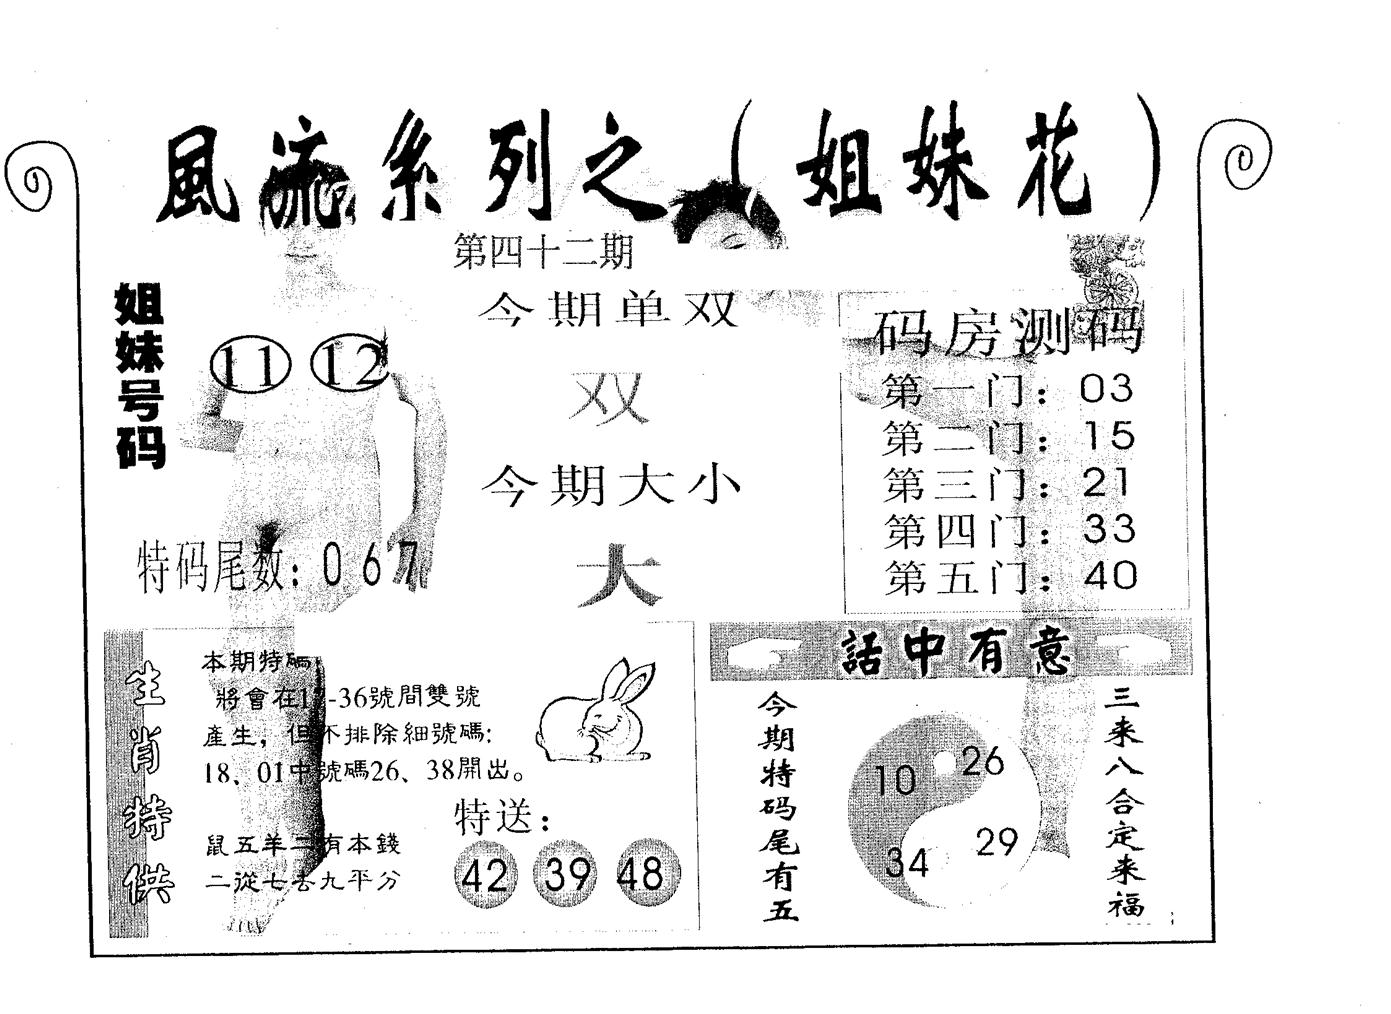 風流系列之（姐妹花）
第四十二期
姐妹号码
11 12
特码尾数：067
今期单双
双
今期大小
大
码房测码
第一门：03
第二门：15
第三门：21
第四门：33
第五门：40
生肖特供
本期特碼
將會在17-36號間雙號
產生，但不排除細號碼：
18、01中號碼26、38開出。
鼠五羊二有本錢
二從七去九平分
特送：
42 39 48
話中有意
今期特码尾有五
10 26
34 29
三来八合定来福